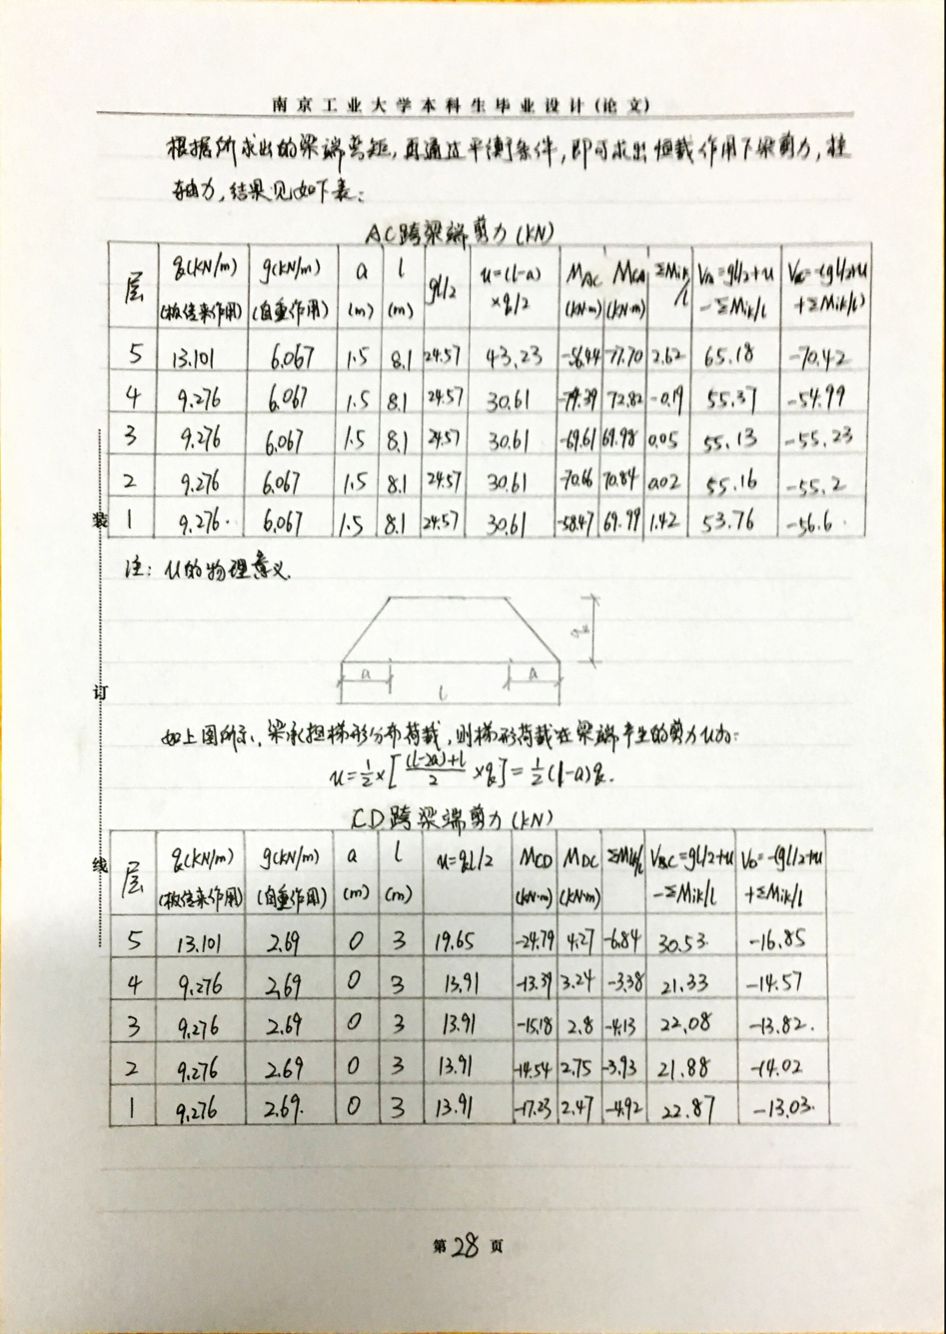 南京工业大学本科生毕业设计(论文)
根据所求出的梁端弯矩,再通过平衡条件,即可求出恒载作用下梁剪力,柱
轴力,结果见如下表:
AC跨梁端剪力(KN)
层 q(KN/m) (板传来作用) g(KN/m) (自重作用) a (m) l (m) gl/2 u=(l-a)×q/2 MAC (kN·m) MCA (kN·m) ΣMik/l VA=gl/2+u-ΣMik/l VC=-(gl/2+u+ΣMik/l)
5 13.101 6.067 1.5 8.1 24.57 43.23 -56.44 77.70 2.62 65.18 -70.42
4 9.276 6.067 1.5 8.1 24.57 30.61 -74.39 72.82 -0.19 55.37 -54.99
3 9.276 6.067 1.5 8.1 24.57 30.61 -69.61 69.98 0.05 55.13 -55.23
2 9.276 6.067 1.5 8.1 24.57 30.61 -70.66 70.84 0.02 55.16 -55.2
1 9.276 6.067 1.5 8.1 24.57 30.61 -58.47 69.99 1.42 53.76 -56.6
注: u的物理意义.
a l a q
如上图所示、梁承担梯形分布荷载,则梯形荷载在梁端产生的剪力u为:
u=1/2×[((l-2a)+l)/2 ×q]=1/2(l-a)q.
CD跨梁端剪力(KN)
层 q(KN/m) (板传来作用) g(KN/m) (自重作用) a (m) l (m) u=ql/2 MCD (kN·m) MDC (kN·m) ΣMik/l VC=gl/2+u-ΣMik/l VD=-(gl/2+u+ΣMik/l
5 13.101 2.69 0 3 19.65 -24.79 4.27 -6.84 30.53 -16.85
4 9.276 2.69 0 3 13.91 -13.39 3.24 -3.38 21.33 -14.57
3 9.276 2.69 0 3 13.91 -15.18 2.8 -4.13 22.08 -13.82.
2 9.276 2.69 0 3 13.91 -14.54 2.75 -3.93 21.88 -14.02
1 9.276 2.69. 0 3 13.91 -17.23 2.47 -4.92 22.87 -13.03.
装
订
线
第28页